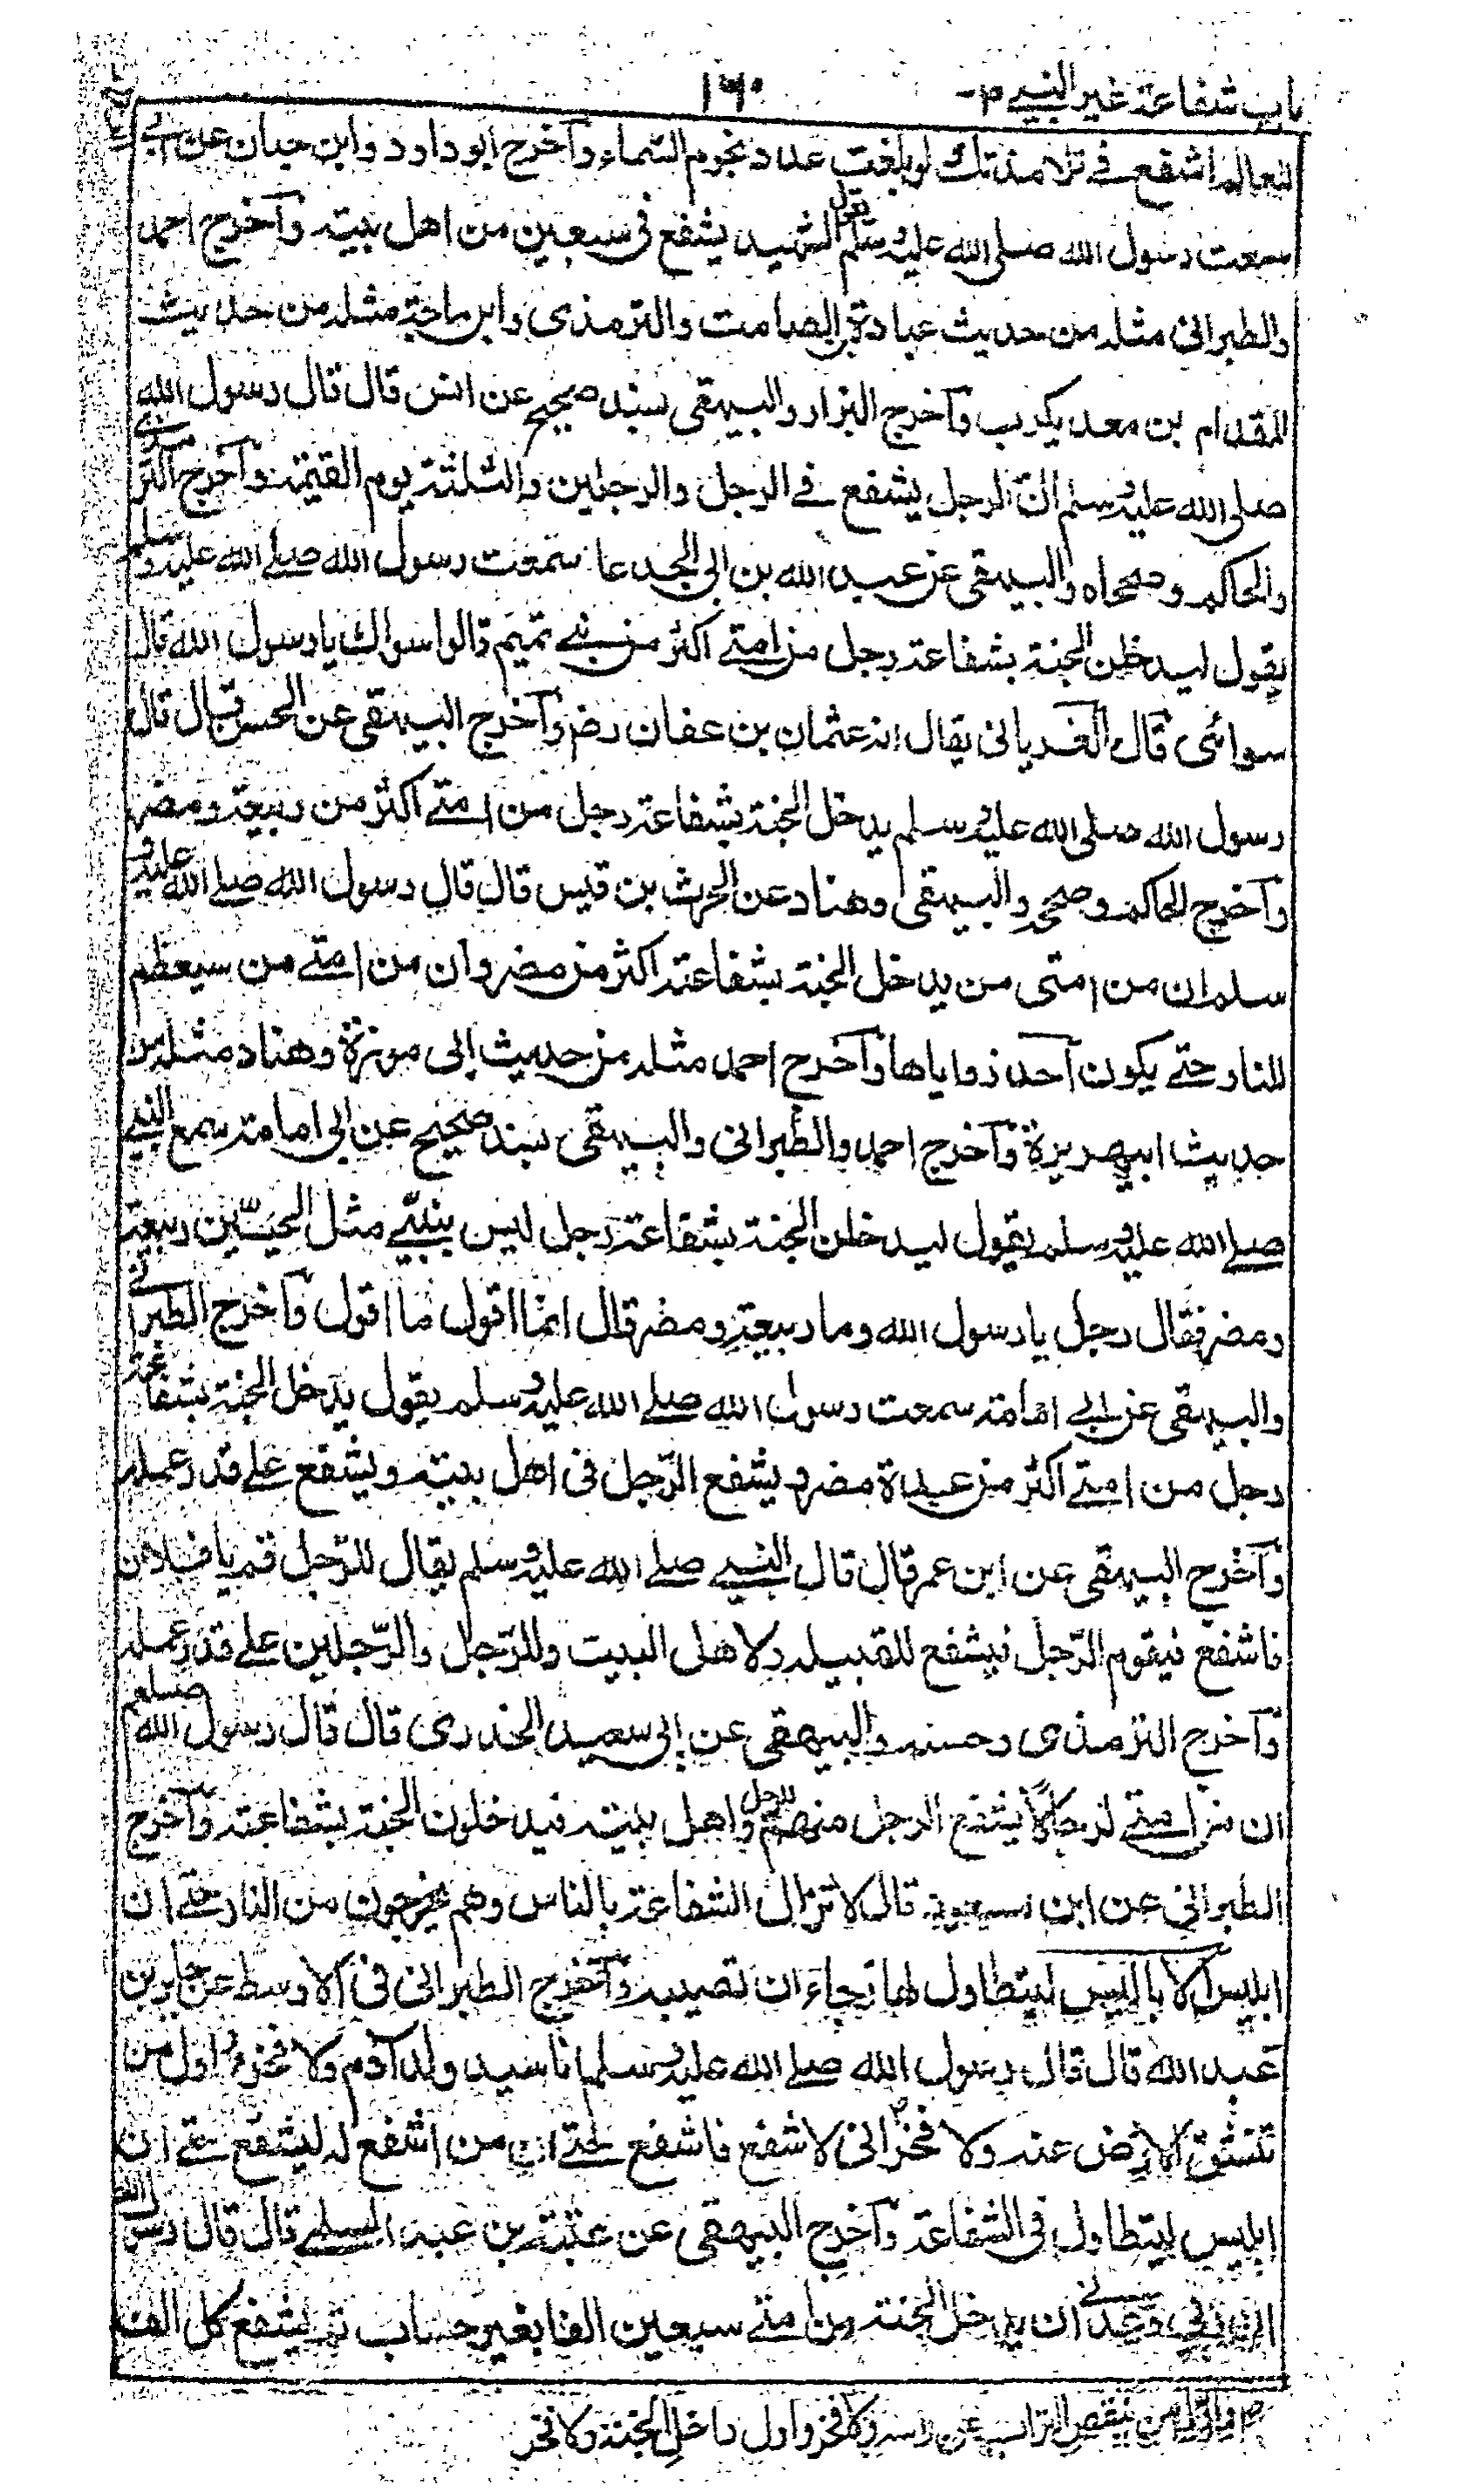 باب شفاعة غير النبي ص ١٦٠
للعالم اشفع في تلامذتك لو بلغت عدد نجوم السماء وآخرج ابو داود وابن حبان عن ابي
سمعت رسول الله صلى الله عليه وسلم يقول الشهيد يشفع فى سبعين من اهل بيته وآخرج احمد
والطبرانى مثله من حديث عبادة بن الصامت والترمذى وابن ماجة مثله من حديث
المقدام بن معد يكرب وآخرج البزار والبيهقى بسند صحيح عن انس قال قال رسول الله
صلى الله عليه وسلم ان الرجل يشفع في الرجل والرجلين والثلثة يوم القيمة وآخرج الترمذى
والحاكم وصححاه والبيهقى عن عبد الله بن ابى الجدعا سمعت رسول الله صلے الله عليه وسلم
يقول ليدخلن الجنة بشفاعة رجل من امتے اكثر من بنے تميم قالوا سواك يا رسول الله قال
سوائى قال الفريانى يقال انه عثمان بن عفان رضـ وآخرج البيهقى عن الحسن قال قال
رسول الله صلى الله عليه وسلم يدخل الجنة بشفاعة رجل من امتے اكثر من ربيعة ومضر
وآخرج الحاكم وصححه والبيهقى وهناد عن الحرث بن قيس قال قال رسول الله صلے الله عليه و
سلم ان من امتى من يدخل الجنة بشفاعته اكثر من مضر وان من امتے من سيعظم
للنار حتے يكون آحد زواياها وآخرج احمد مثله من حديث ابى برزة وهناد مثله من
حديث ابيهريرة وآخرج احمد والطبرانى والبيهقى بسند صحيح عن ابى امامة سمع النبے
صلے الله عليه وسلم يقول ليدخلن الجنة بشفاعة رجل ليس بنبيّے مثل الحيّين ربيعة
ومضر فقال رجل يا رسول الله وما ربيعة ومضر قال انما اقول ما اقول وآخرج الطبرانے
والبيهقى عن ابے امامة سمعت رسول الله صلے الله عليه وسلم يقول يدخل الجنة بشفاعة
رجل من امتے اكثر من عدة مضر ويشفع الرّجل فى اهل بيته ويشفع علے قدر عمله
وآخرج البيهقى عن ابن عمر قال قال النبے صلے الله عليه وسلم يقال للرّجل قم يا فلان
فاشفع فيقوم الرّجل فيشفع للقبيلة ولاهل البيت وللرّجل والرّجلين علے قدر عمله
وآخرج الترمذى وحسنه والبيهقى عن ابى سعيد الخدرى قال قال رسول الله صلعم
ان من امتے لرجالًا يشفع الرجل منهم للرجل واهل بيته فيدخلون الجنة بشفاعته وآخرج
الطبرانى عن ابن قال لا تزال الشفاعة بالناس وهم يخرجون من النار حتے ان
ابليس الاباليس ليتطاول لها رجاء ان تصيبه وآخرج الطبرانى فى الاوسط عن جابر بن
عبد الله قال قال رسول الله صلے الله عليه وسلم انا سيد ولد آدم ولا فخر و اول من
تنشق الارض عنه ولا فخر انى لاشفع فاشفع حتے ان من اشفع له ليشفع حتے ان
ابليس ليتطاول فى الشفاعة وآخرج البيهقى عن عتبة بن عبد السلمے قال قال رسول الله
ان ربي وعدنے ان يدخل الجنة من امتے سبعين الفا بغير حساب ثم يشفع كل الف
واول من ينفض التراب عن راسه ولا فخر واول داخل الجنة ولا فخر